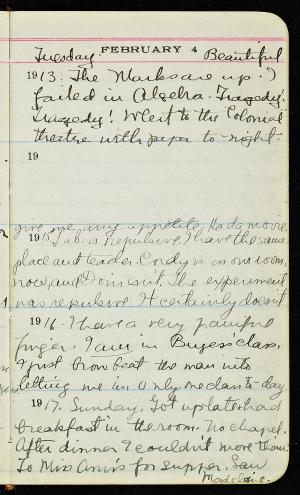 Tuesday FEBRUARY 4 Beautiful
1913. The Marks are up. I
failed in Algebra. Tragedy!
Tragedy! Went to the Colonial
theatre with papa to-night.
19
give me any appetite. Had a movie.
1915 Lab. is repulsive. I have the same
place and leader. Cordy is in our room,
now, and Doris isn't. The experiment
was repulsive. It certainly doesn't
1916. I have a very painful
finger. I am in Buzer's class.
I just brow beat the man into
letting me in. Only one class to-day.
1917. Sunday. Got up late. had
breakfast in the room. No chapel.
After dinner I couldn't more than
To Miss Ann's for supper. Saw
Madeleine.